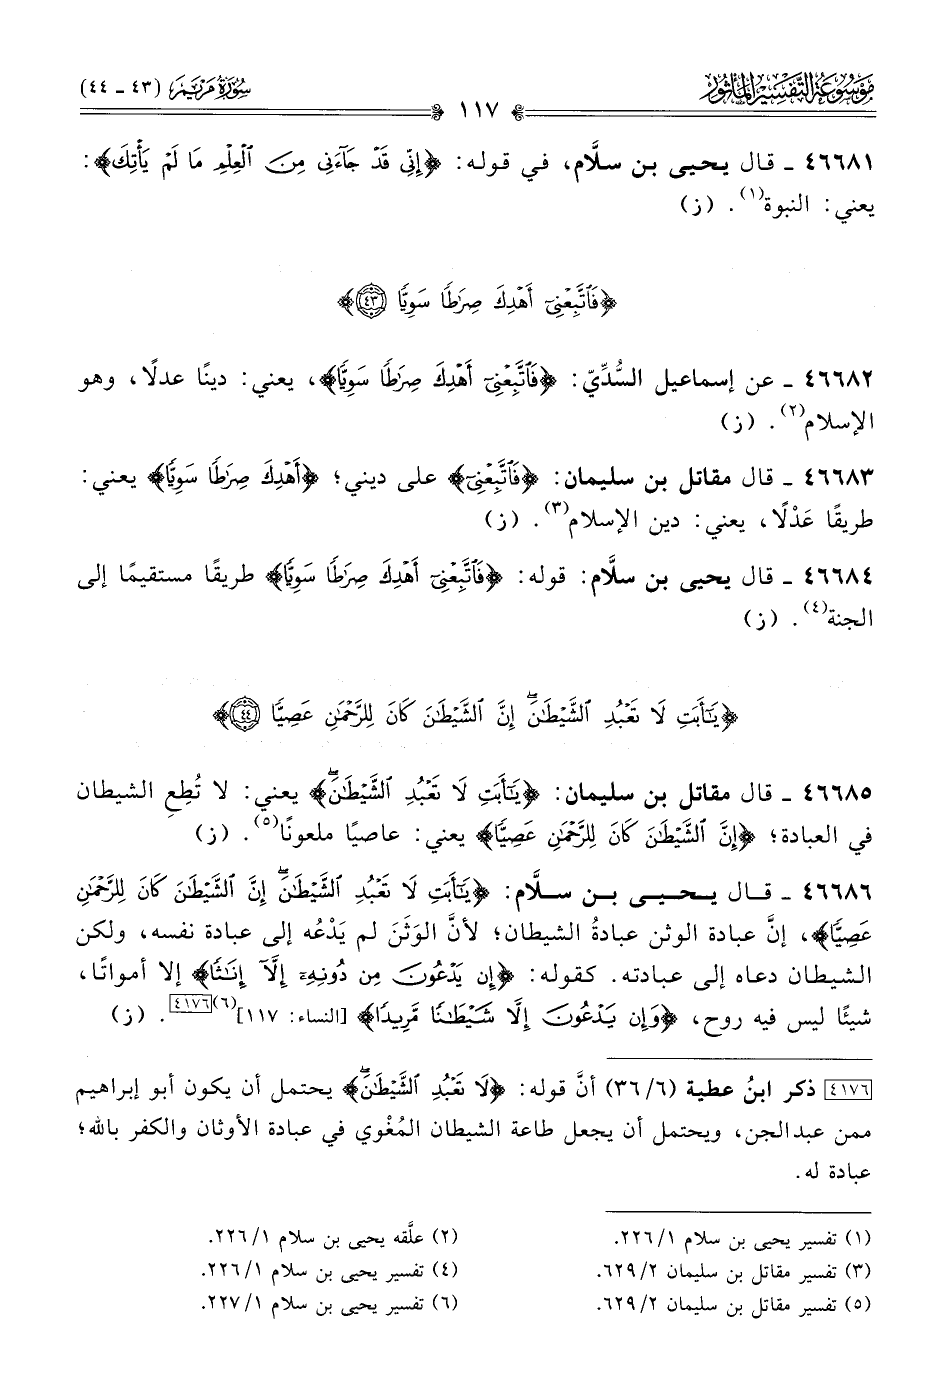 مَوْسُوعَة التَّفْسِيرِ المَأْثُور
سُورَةُ مَرْيَمَ (٤٣ - ٤٤)
١١٧
٤٦٦٨١ - قال يحيى بن سلَّام، في قوله: ﴿إِنِّي قَدْ جَآءَنِي مِنَ ٱلْعِلْمِ مَا لَمْ يَأْتِكَ﴾:
يعني: النبوة(١). (ز)
﴿فَٱتَّبِعْنِىٓ أَهْدِكَ صِرَٰطًا سَوِيًّا ٤٣﴾
٤٦٦٨٢ - عن إسماعيل السُّدِّيّ: ﴿فَٱتَّبِعْنِىٓ أَهْدِكَ صِرَٰطًا سَوِيًّا﴾، يعني: دينًا عدلًا، وهو
الإسلام(٢). (ز)
٤٦٦٨٣ - قال مقاتل بن سليمان: ﴿فَٱتَّبِعْنِىٓ﴾ على ديني؛ ﴿أَهْدِكَ صِرَٰطًا سَوِيًّا﴾ يعني:
طريقًا عَدْلًا، يعني: دين الإسلام(٣). (ز)
٤٦٦٨٤ - قال يحيى بن سلَّام: قوله: ﴿فَٱتَّبِعْنِىٓ أَهْدِكَ صِرَٰطًا سَوِيًّا﴾ طريقًا مستقيمًا إلى
الجنة(٤). (ز)
﴿يَٰٓأَبَتِ لَا تَعْبُدِ ٱلشَّيْطَٰنَۖ إِنَّ ٱلشَّيْطَٰنَ كَانَ لِلرَّحْمَٰنِ عَصِيًّا ٤٤﴾
٤٦٦٨٥ - قال مقاتل بن سليمان: ﴿يَٰٓأَبَتِ لَا تَعْبُدِ ٱلشَّيْطَٰنَۖ﴾ يعني: لا تُطِعِ الشيطان
في العبادة؛ ﴿إِنَّ ٱلشَّيْطَٰنَ كَانَ لِلرَّحْمَٰنِ عَصِيًّا﴾ يعني: عاصيًا ملعونًا(٥). (ز)
٤٦٦٨٦ - قال يحيى بن سلَّام: ﴿يَٰٓأَبَتِ لَا تَعْبُدِ ٱلشَّيْطَٰنَۖ إِنَّ ٱلشَّيْطَٰنَ كَانَ لِلرَّحْمَٰنِ
عَصِيًّا﴾، إنَّ عبادة الوثن عبادةُ الشيطان؛ لأنَّ الوَثَنَ لم يَدْعُه إلى عبادة نفسه، ولكن
الشيطان دعاه إلى عبادته. كقوله: ﴿إِن يَدْعُونَ مِن دُونِهِۦٓ إِلَّآ إِنَٰثًا﴾ إلا أمواتًا،
شيئًا ليس فيه روح، ﴿وَإِن يَدْعُونَ إِلَّا شَيْطَٰنًا مَّرِيدًا﴾ [النساء: ١١٧](٦)[٤١٧٦]. (ز)
[٤١٧٦] ذكر ابنُ عطية (٦/ ٣٦) أنَّ قوله: ﴿لَا تَعْبُدِ ٱلشَّيْطَٰنَۖ﴾ يحتمل أن يكون أبو إبراهيم
ممن عبد الجن، ويحتمل أن يجعل طاعة الشيطان المُغْوي في عبادة الأوثان والكفر بالله؛
عبادة له.
(١) تفسير يحيى بن سلام ١/ ٢٢٦.
(٢) علَّقه يحيى بن سلام ١/ ٢٢٦.
(٣) تفسير مقاتل بن سليمان ٢/ ٦٢٩.
(٤) تفسير يحيى بن سلام ١/ ٢٢٦.
(٥) تفسير مقاتل بن سليمان ٢/ ٦٢٩.
(٦) تفسير يحيى بن سلام ١/ ٢٢٧.